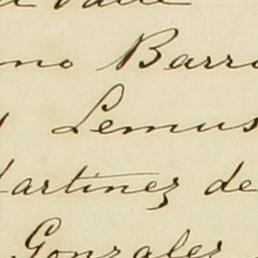 Valle
no Barr
Lemus
artinez de
Gonzales